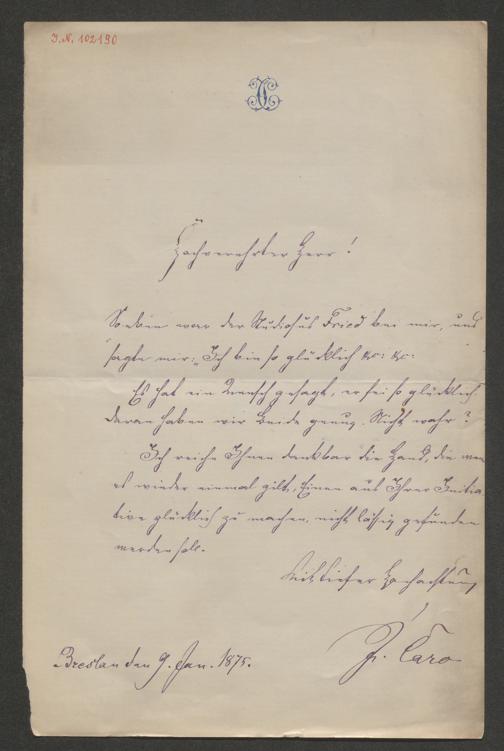 J.N. 102190
Hochverehrter Herr!
Soeben war der Studiosus Fried bei mir, und
sagte mir: „Ich bin so glücklich etc: etc:
Es hat ein Mensch gesagt, er sei so glücklich
daran haben wir Beide genug. Nicht wahr?
Ich reiche Ihnen dankbar die Hand, die wenn
es wieder einmal gilt, Einen aus Ihrer Initia
tive glücklich zu machen, nicht lässig gefunden
werden soll.
Mit tiefer Hochachtung
J. Caro
Breslau den 9. Jan. 1875.